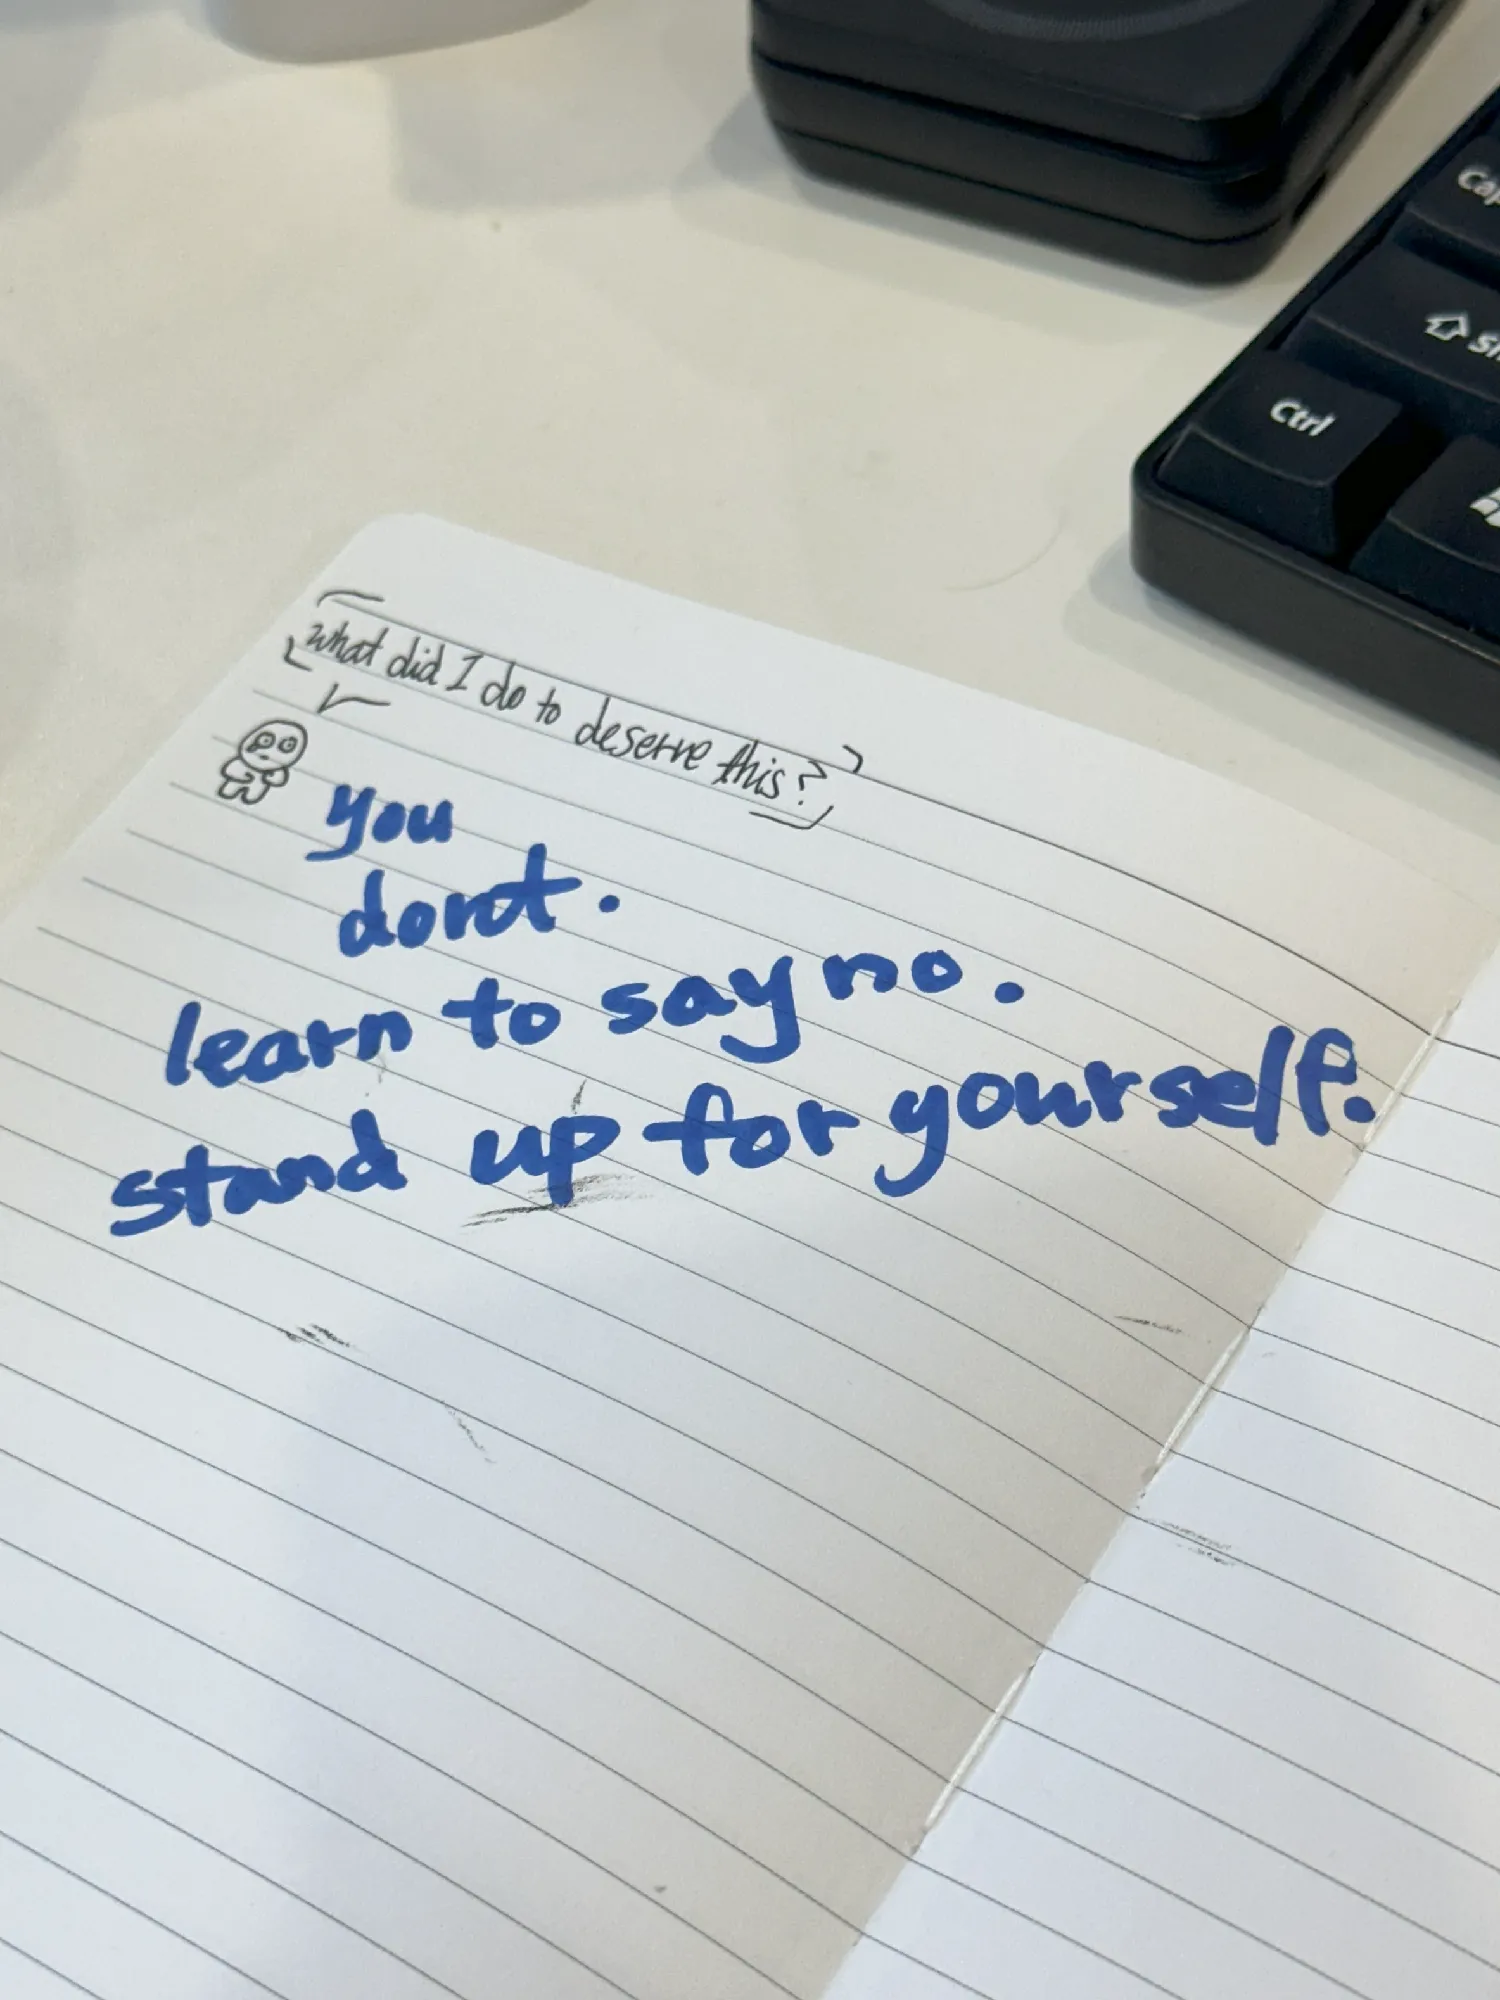 Cap
Sh
Ctrl
what did I do to deserve this?
you
don't.
learn to say no.
stand up for yourself.